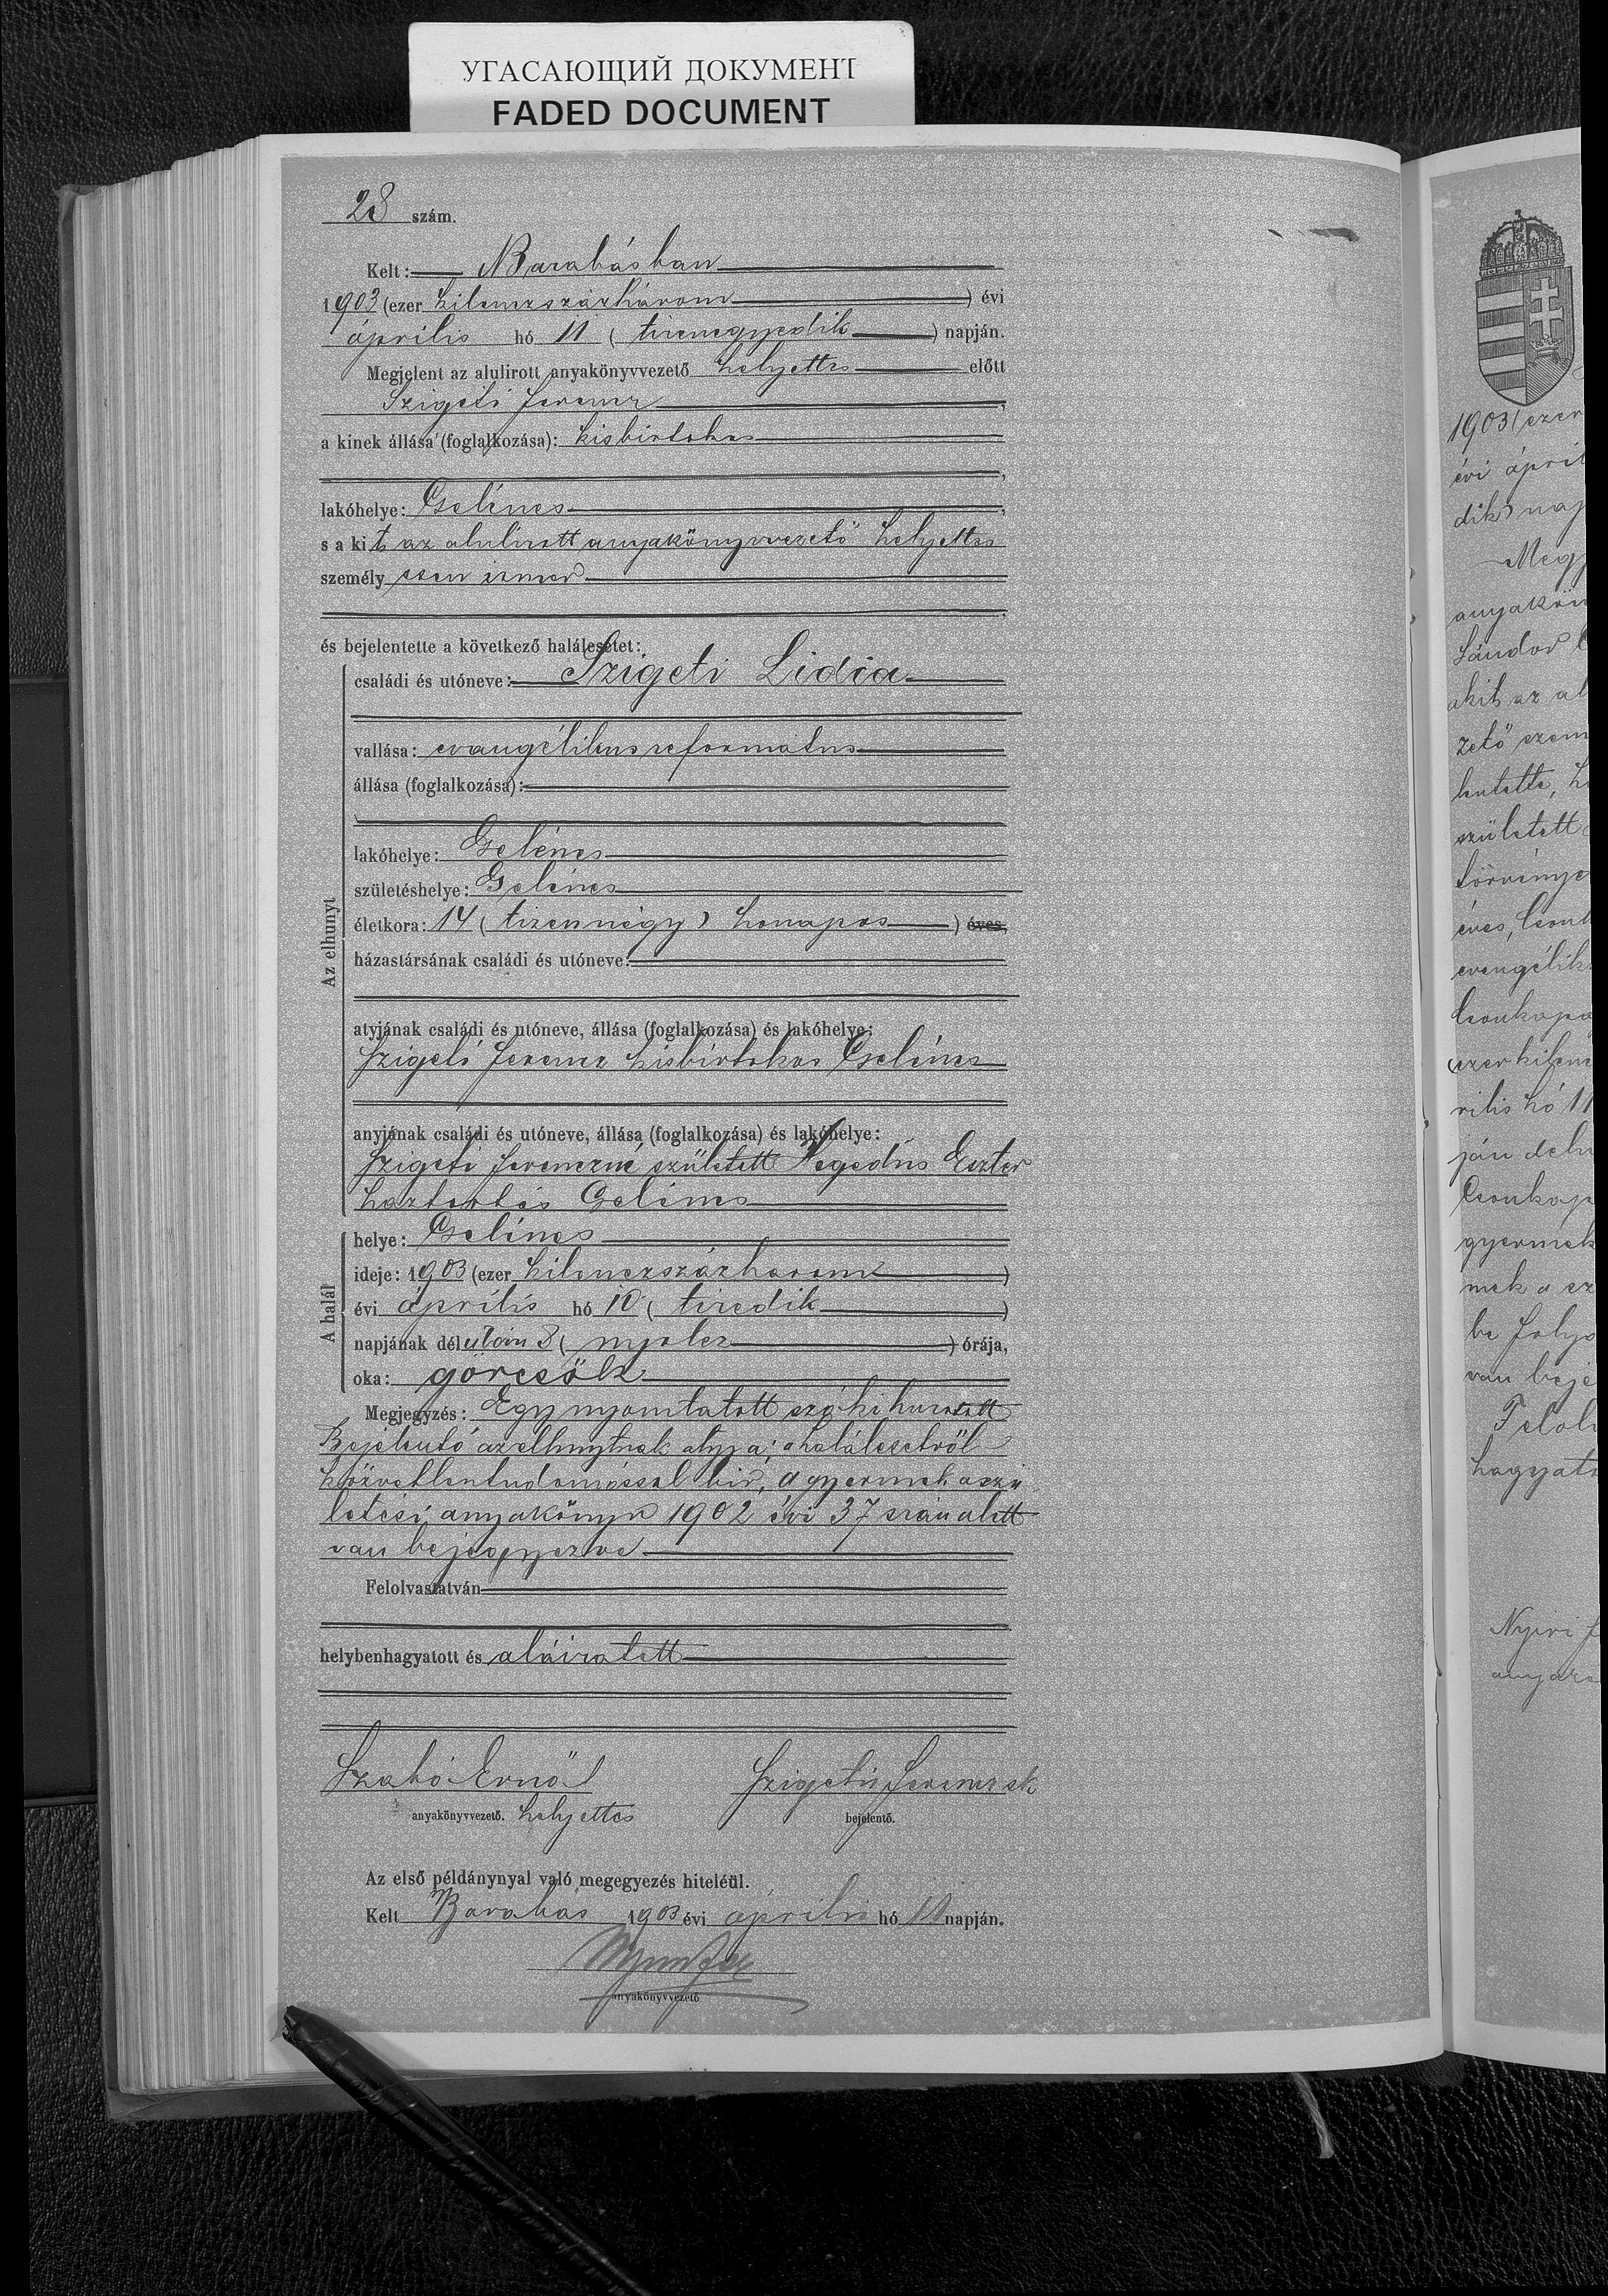 УГАСАЮЩИЙ ДОКУМЕНТ
FADED DOCUMENT
28 szám.
Kelt: Barabásban
1903 (ezer kilenczszázhárom) évi
április hó 11 (tizenegyedik) napján.
Megjelent az alulirott anyakönyvvezető helyettes előtt
Szigeti Ferencz,
a kinek állása (foglalkozása): kisbirtokos
lakóhelye: Gelénes,
s a kit az alulirott anyakönyvvezető helyettes
személyesen ismer
és bejelentette a következő halálesetet:
Az elhunyt
családi és utóneve: Szigeti Lidia
vallása: evangélikus református
állása (foglalkozása):
lakóhelye: Gelénes
születéshelye: Gelénes
életkora: 14 (tizennégy) honapos ) éves,
házastársának családi és utóneve:
atyjának családi és utóneve, állása (foglalkozása) és lakóhelye:
Szigeti Ferencz kisbirtokos Gelénes
anyjának családi és utóneve, állása (foglalkozása) és lakóhelye:
Szigeti Ferenczné született Hegedüs Eszter
haztartás Gelénes
A halál
helye: Gelénes
ideje: 1903 (ezer kilenczszázharom)
évi április hó 10 (tizedik)
napjának délután 8 (nyolcz) órája,
oka: görcsök
Megjegyzés: Egy nyomtatott szó kihuzatott
Bejelentő az elhunytnak atyja; a halálesetről
közvetlen tudomással bir, a gyermek a szü
letési anyakönyv 1902 évi 37 szám alatt
van bejegyezve
Felolvastatván
helybenhagyatott és aláiratott
Szabó Ernő Szigeti Ferencz sk
anyakönyvvezető. helyettes bejelentő.
Az első példánynyal való megegyezés hiteléül.
Kelt Barabás 1903 évi április hó 11 napján.
anyakönyvvezető
1903 (ezer
évi ápril
dik) nap
Megj
anyakön
Sándor
akit az al
zető szem
lentette, h
született
törvénye
éves,
evangélik
Csonkapa
(ezerkilenc
rilis hó 11
ján délu
Csonkap
gyermek
nek a sz
be foly
van beje
Felol
hagyato
Nyiri F